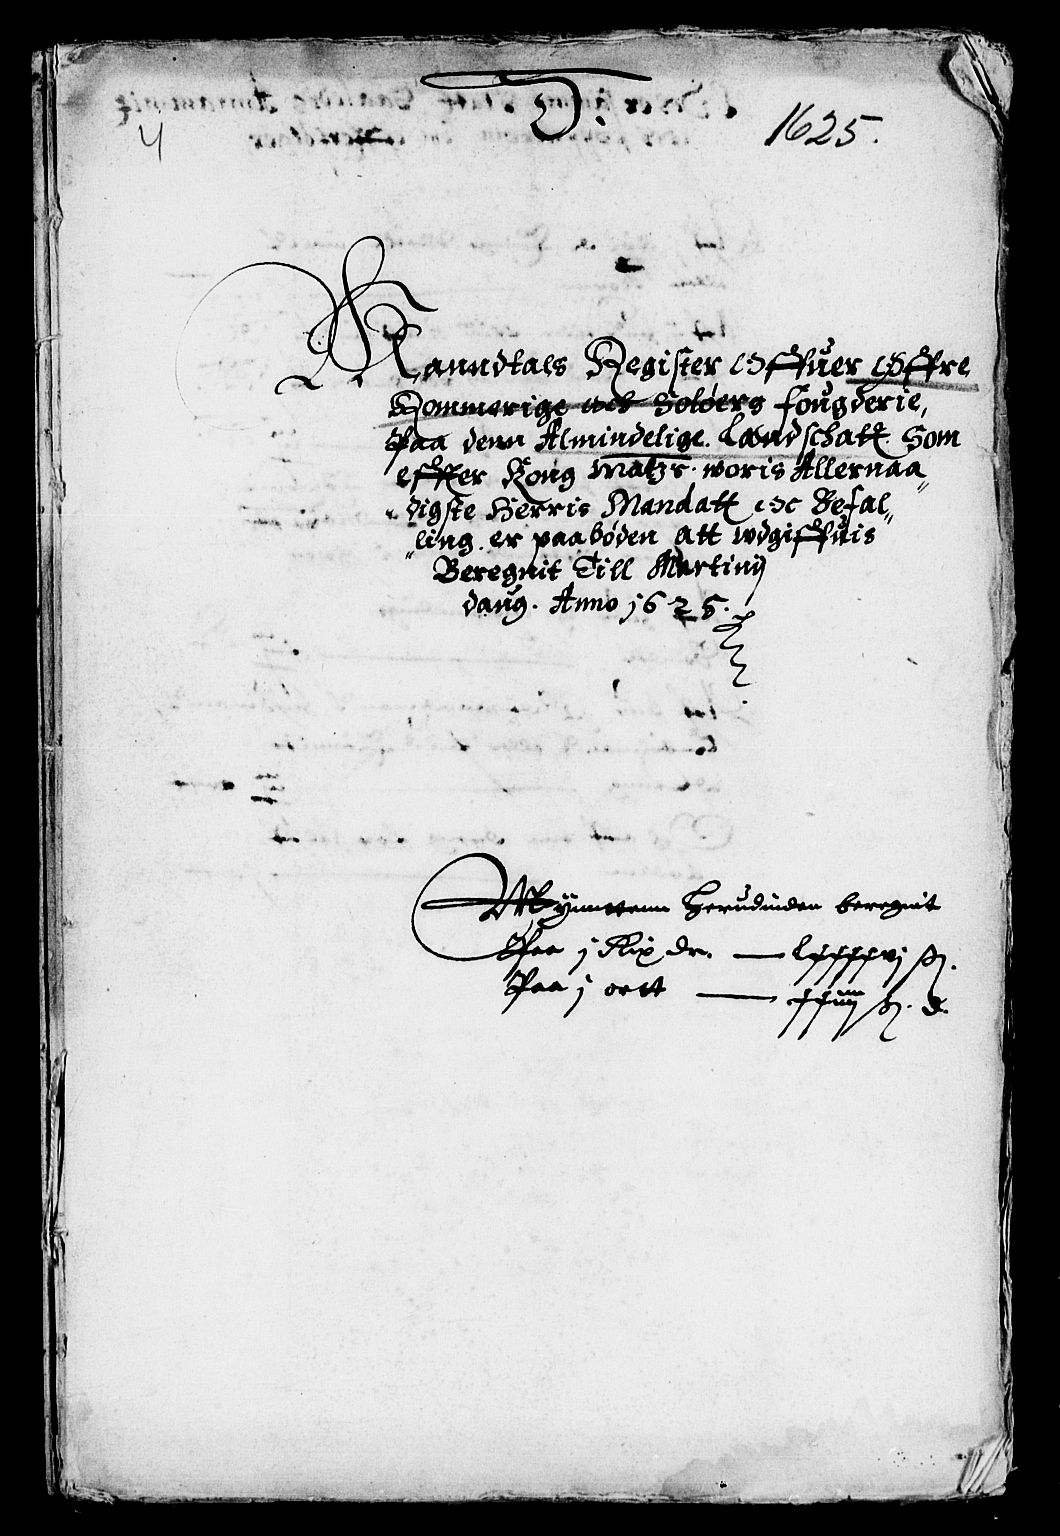 4
1625.
Manndtals Register Offuer Øffre
Rommerige och Soløers fougderie,
Paa denn Almindelige Landschatt. Som
effter Kong Matzs. woris Allernaa
digste Herris Mandatt oc Befal
ling er paabøden att wdgiffuis
Beregnit Till Martinj
daug. Anno 1625.
Mÿnntenn Herudinden beregnit
Paa j Rix dr. — lxxxxvj ß.
Paa j ortt — xxiiij ß. d.